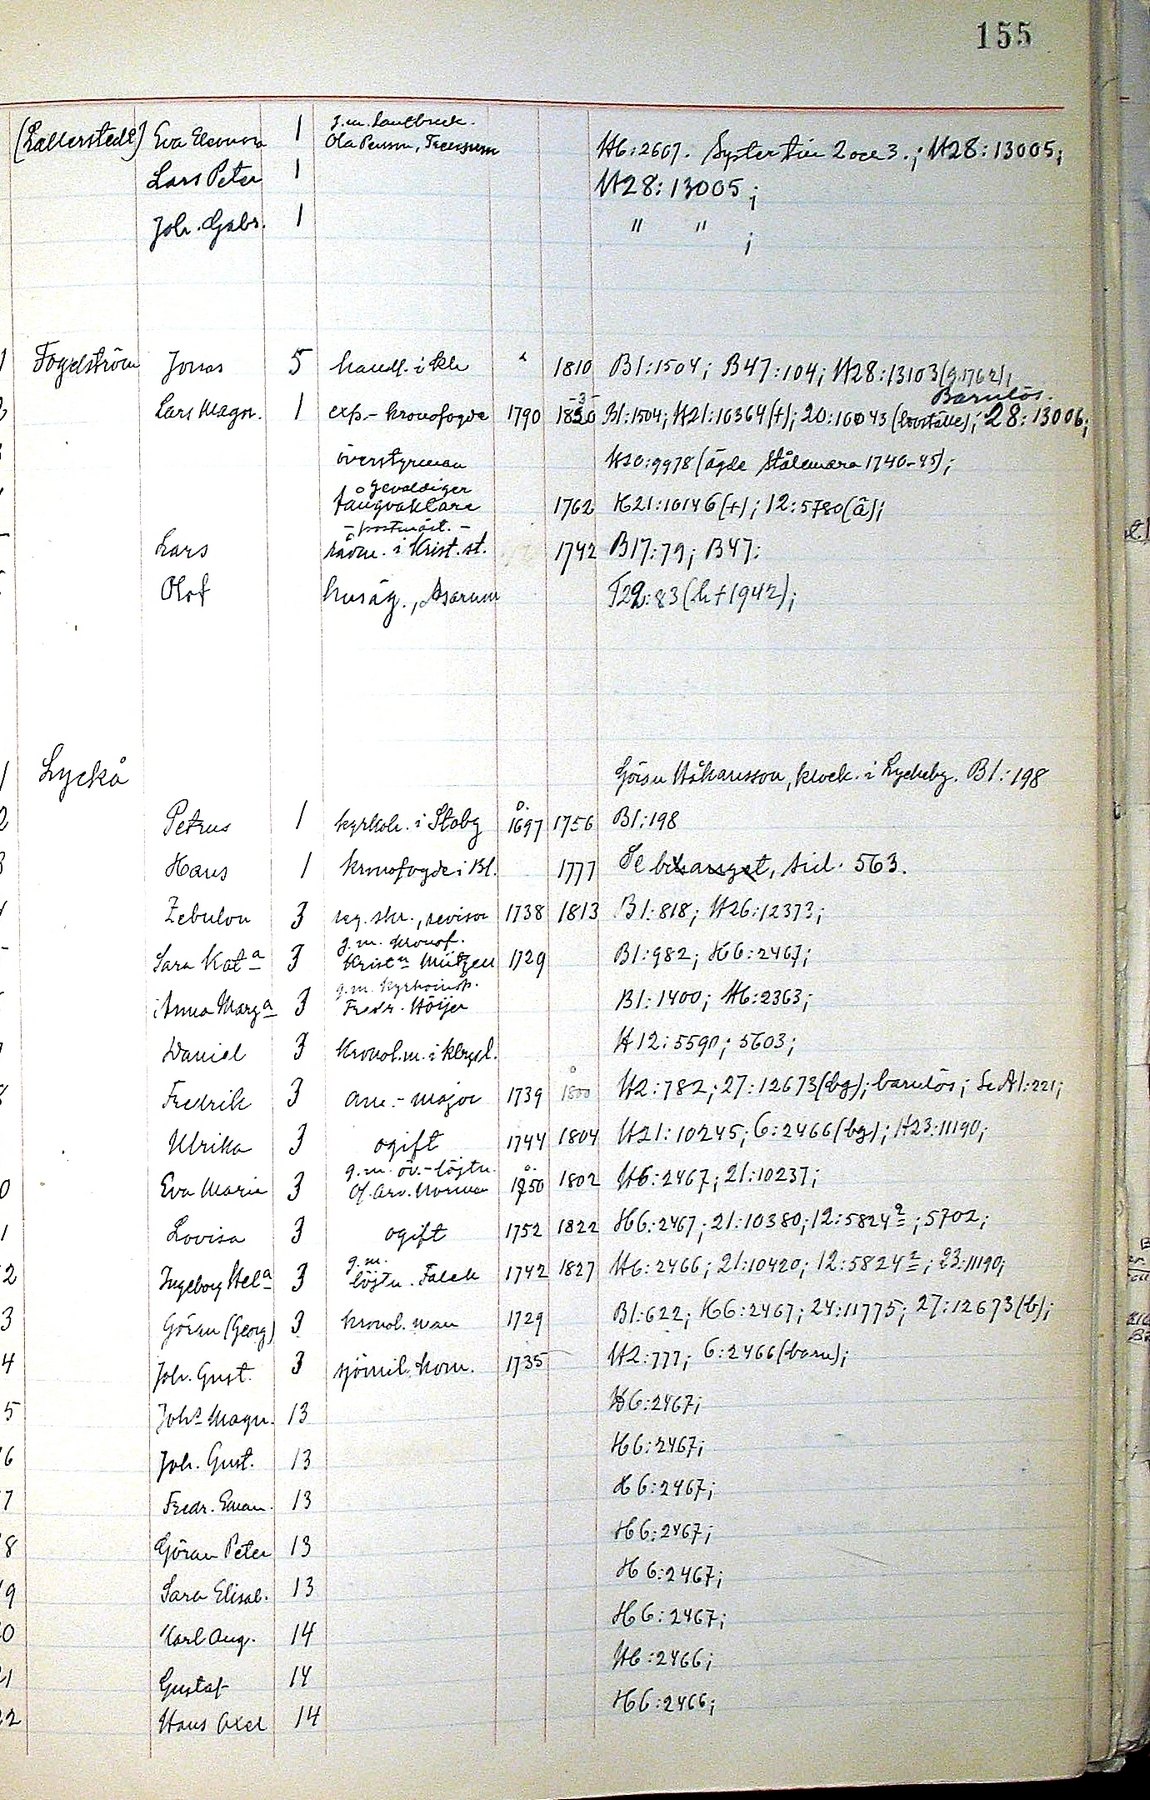 155
g.m. Lantbruk.
(Lallerstedt) Eva Eleonora 1 Ola Persson, H6:2607. Syster till 2 och 3.; H28:13005;
Lars Peter 1 H28:13005;
Joh. Gabr. 1 " " ;
1 Fogelström Jonas 5 handl. i Khn 1810 B1:1504; B47:104; H28:13103 (g.1762);
Barnlös.
-3-
Lars Magn. 1 exp.-kronofogde 1790 1830 B1:1504; H21:10364(+); 20:10043 (boställe); 28:13006;
överstyrman H20:9978 (ägde Stålemara 1740-45);
gevaldiger
fångvaktare 1762 H21:10146(+); 12:5780(å);
-postmäst.-
Lars rådm. i Krist.st. 1742 B17:79; B47:
Olof husäg., Asarum T22:83 (h +1942);
1 Lyckå Görsn Håkansson, klock. i Lyckeby. B1:198
2 Petrus 1 kyrkoh. i Stoby ö. 1697 1756 B1:198
3 Hans 1 kronofogde i Bl. 1777 Se bihanget, sid. 563.
Zebulon 3 reg.skr., revisor 1738 1813 B1:818; H26:12373;
g.m. kronof.
Sara Kata 3 Kristn Mützell 1729 B1:982; H6:2467;
g.m. kyrkoinsp.
Anna Marga 3 Fredr. Höijer B1:1400; H6:2363;
Daniel 3 Kronol.m. i H12:5590; 5603;
Fredrik 3 am.-major 1739 1800 H2:782; 27:12673(bg); barnlös; Se A1:221;
Ulrika 3 ogift 1744 1804 H21:10245; 6:2466(bg); H23:11190;
g.m. öv.-löjtn.
0 Eva Maria 3 Of. Arv. Norman 1750 1802 H6:2467; 21:10237;
1 Lovisa 3 ogift 1752 1822 H6:2467; 21:10380; 12:5824 2; 5702;
g.m.
2 Ingeborg Hela 3 löjtn. Falck 1742 1827 H6:2466; 21:10420; 12:5824 2; 23:11190;
3 Göran (Georg) 3 kronol.man 1729 B1:622; H6:2467; 24:11775; 27:12673(b);
4 Joh. Gust. 3 sjömil. kom. 1735 H2:777; 6:2466(barn);
5 Johs Magn. 13 H6:2467;
6 Joh. Gust. 13 H6:2467;
7 Fredr. Eman. 13 H6:2467;
8 Göran Peter 13 H6:2467;
9 Sara Elisab. 13 H6:2467;
0 Karl Aug. 14 H6:2467;
1 Gustaf 14 H6:2466;
22 Hans Axel 14 H6:2466;